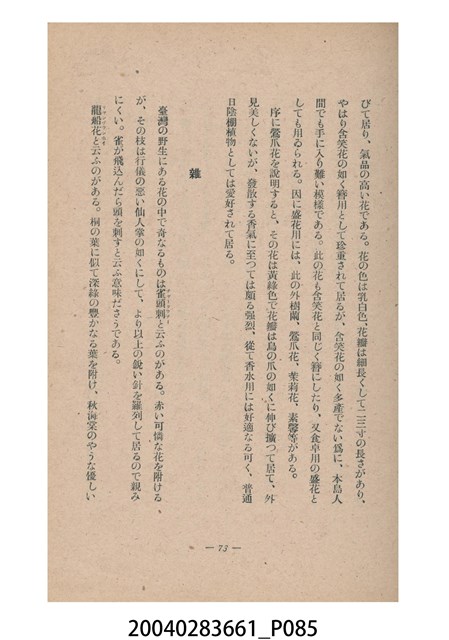 びて居り、氣品の高い花である。花の色は乳白色、花瓣は細長くして二三寸の長さがあり、
やはり含笑花の如く簪用として珍重されて居るが、含笑花の如く多產でない爲に、本島人
間でも手に入り難い模樣である。此の花も含笑花と同じく簪にしたり、又食卓用の盛花と
しても用ゐられる。因に盛花川には、此の外樹蘭、鶯爪花、茉莉花、素馨等がある。
序に鶯爪花を說明すると、その花は黃綠色で花瓣は鳥の爪の如くに伸び擴つて居て、外
見美しくないが、發散する香氣に至つては頗る强烈、從て香水川には好適なる可く、普通
日陰棚植物としては愛好されて居る。
雜
臺灣の野生にある花の中で奇なるものは雀頭刺と云ふのがある。赤い可憐な花を附ける
が、その枝は行儀の惡い仙人掌の如くにして、より以上の銳い針を羅列して居るので親み
にくい。雀が飛込んだら頭を刺すと云ふ意味ださうである。
龍船花と云ふのがある。桐の葉に似て深綠の豐かなる葉を附け、秋海棠のやうな優しい
— 73 —
20040283661_P085